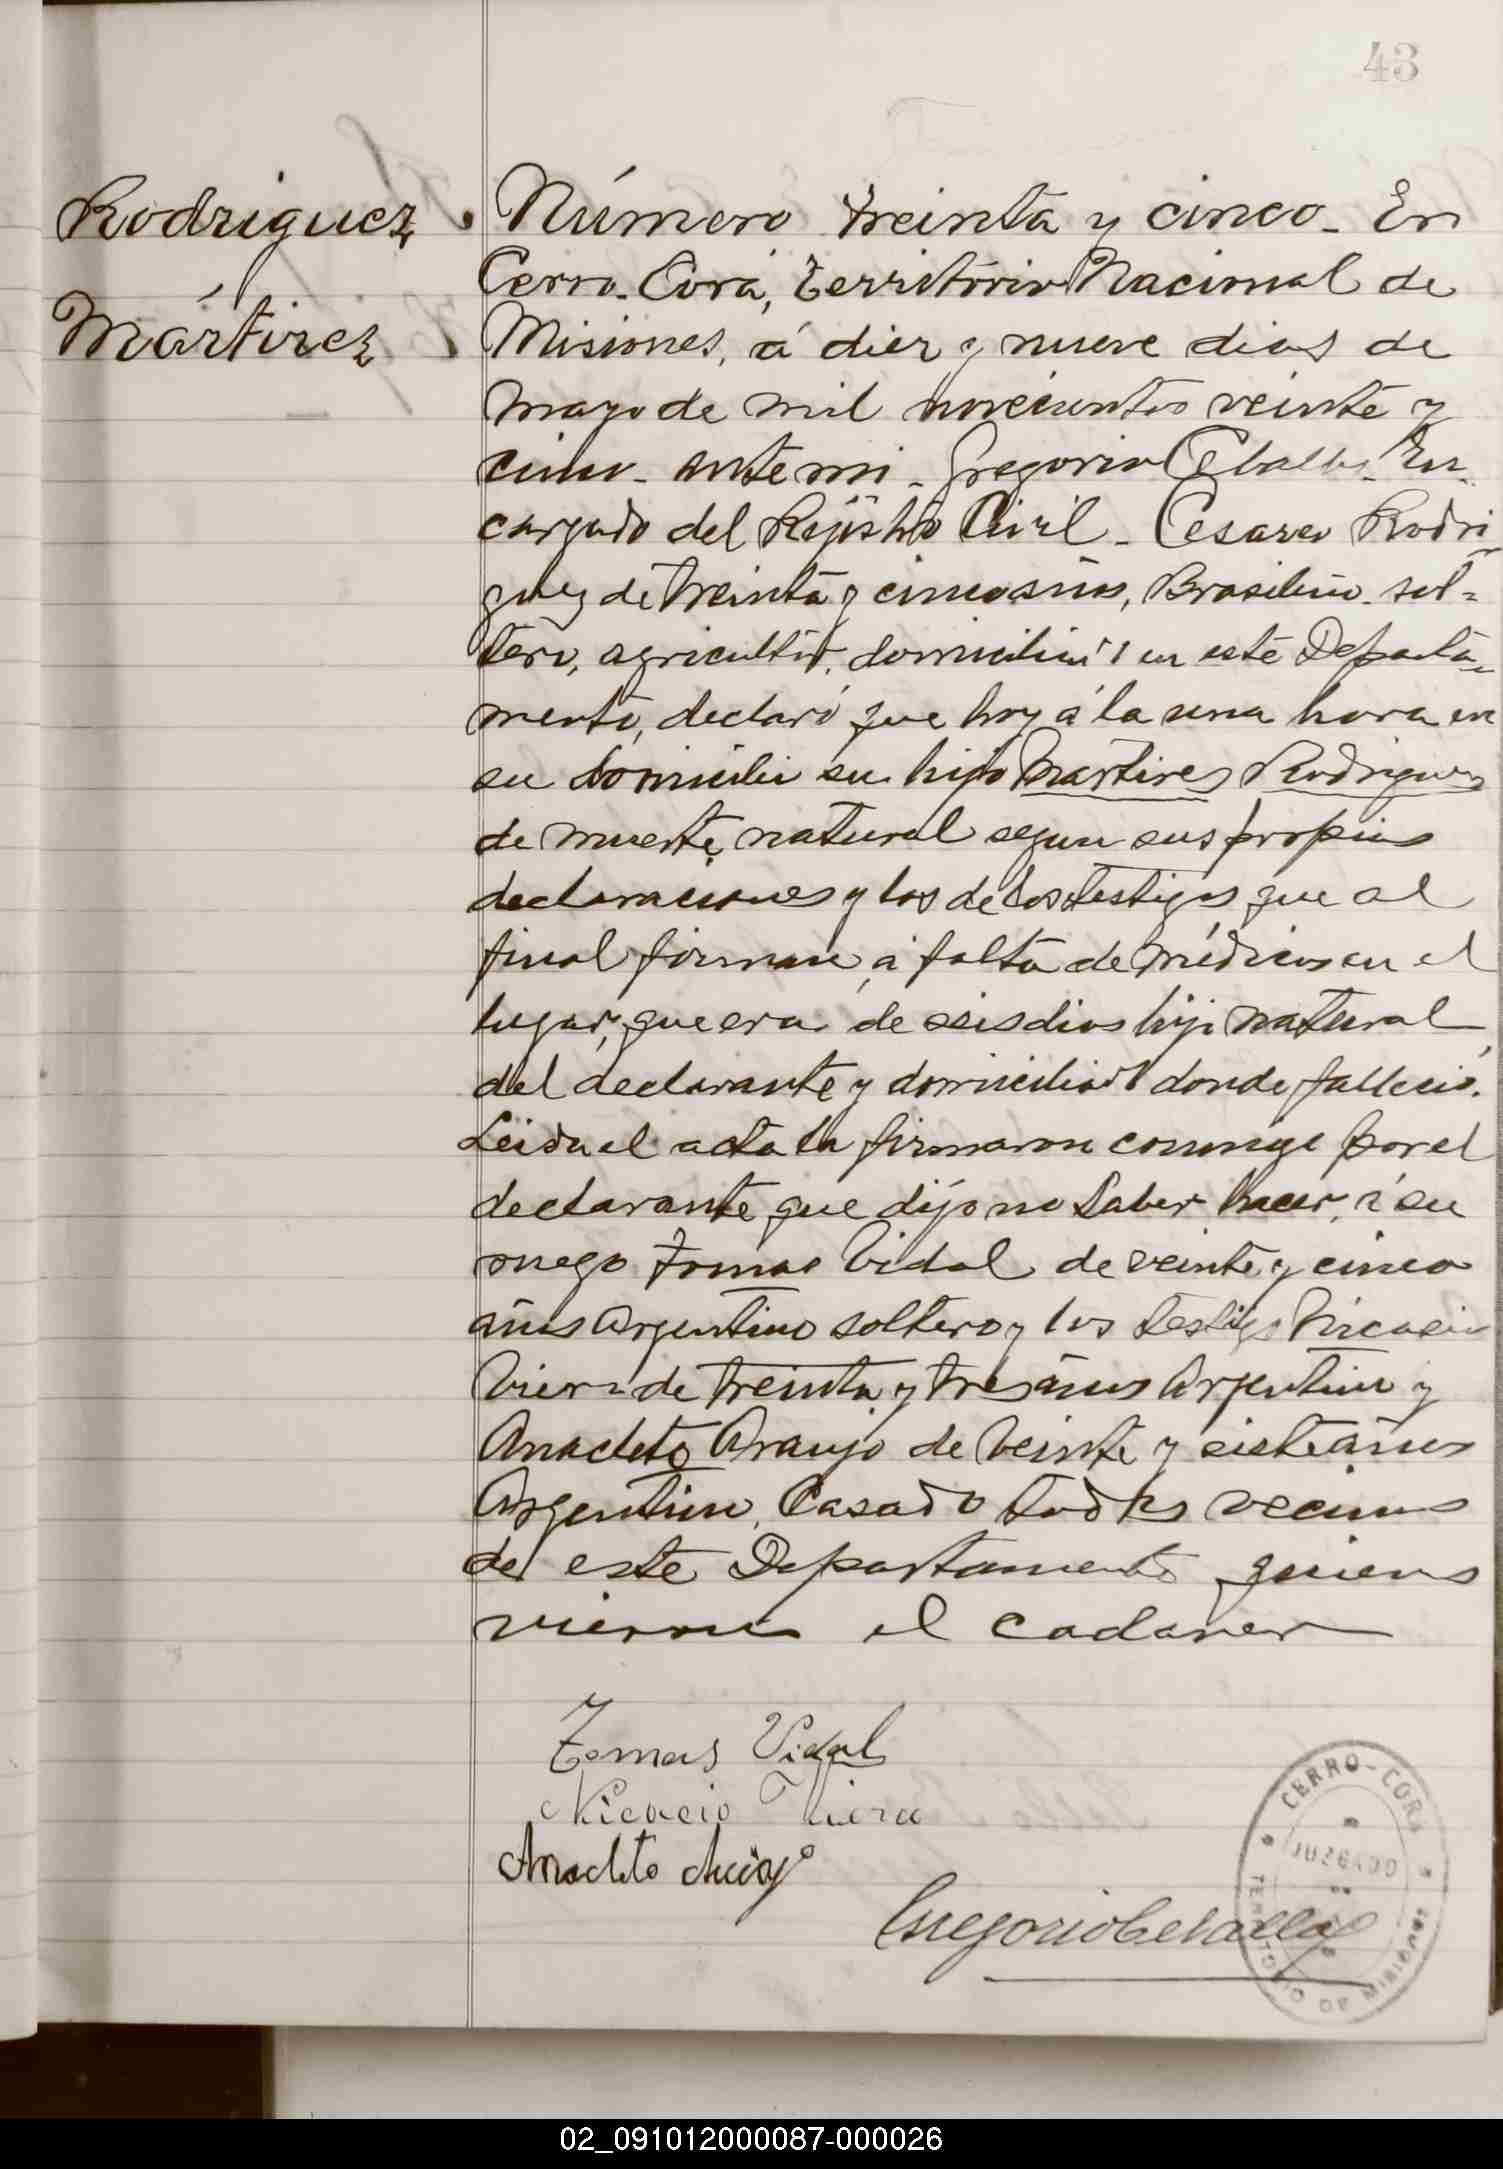 43
Rodriguez
Mártirez
Número treinta y cinco - En
Cerro-Corá, territorio Nacional de
Misiones, á diez y nueve dias de
mayo de mil novecientos veinte y
cinco - ante mi - Gregorio Ceballos - En-
cargado del Rejistro Civil - Cesareo Rodri
guez de treinta y cinco años, Brasilero - sol-
tero, agricultor, domiciliado en este Departa-
mento, declaró que hoy á la una hora en
su domicilio su hijo Martires Rodriguez
de muerte natural segun sus propias
declaraciones y las de los testigos que al
final firman, á falta de médicos en el
lugar, que era de seis dias hijo natural
del declarante y domiciliado donde fallecio.
Leida el acta la firmaron conmigo por el
declarante que dijo no saber hacer, á su
ruego Tomas Vidal de veinte y cinco
años Argentino soltero y los testigos Nicacio
Viera de treinta y tres años Argentino y
Anacleto Araujo de veinte y siete años
Argentino, Casado todos vecinos
de este Departamento quienes
vieron el cadaver
Tomas Vidal
Nicacio Viera
Anacleto
Gregorio Ceballos
CERRO-CORA
JUZGADO
TERRITORIO DE MISIONES
02_091012000087-000026